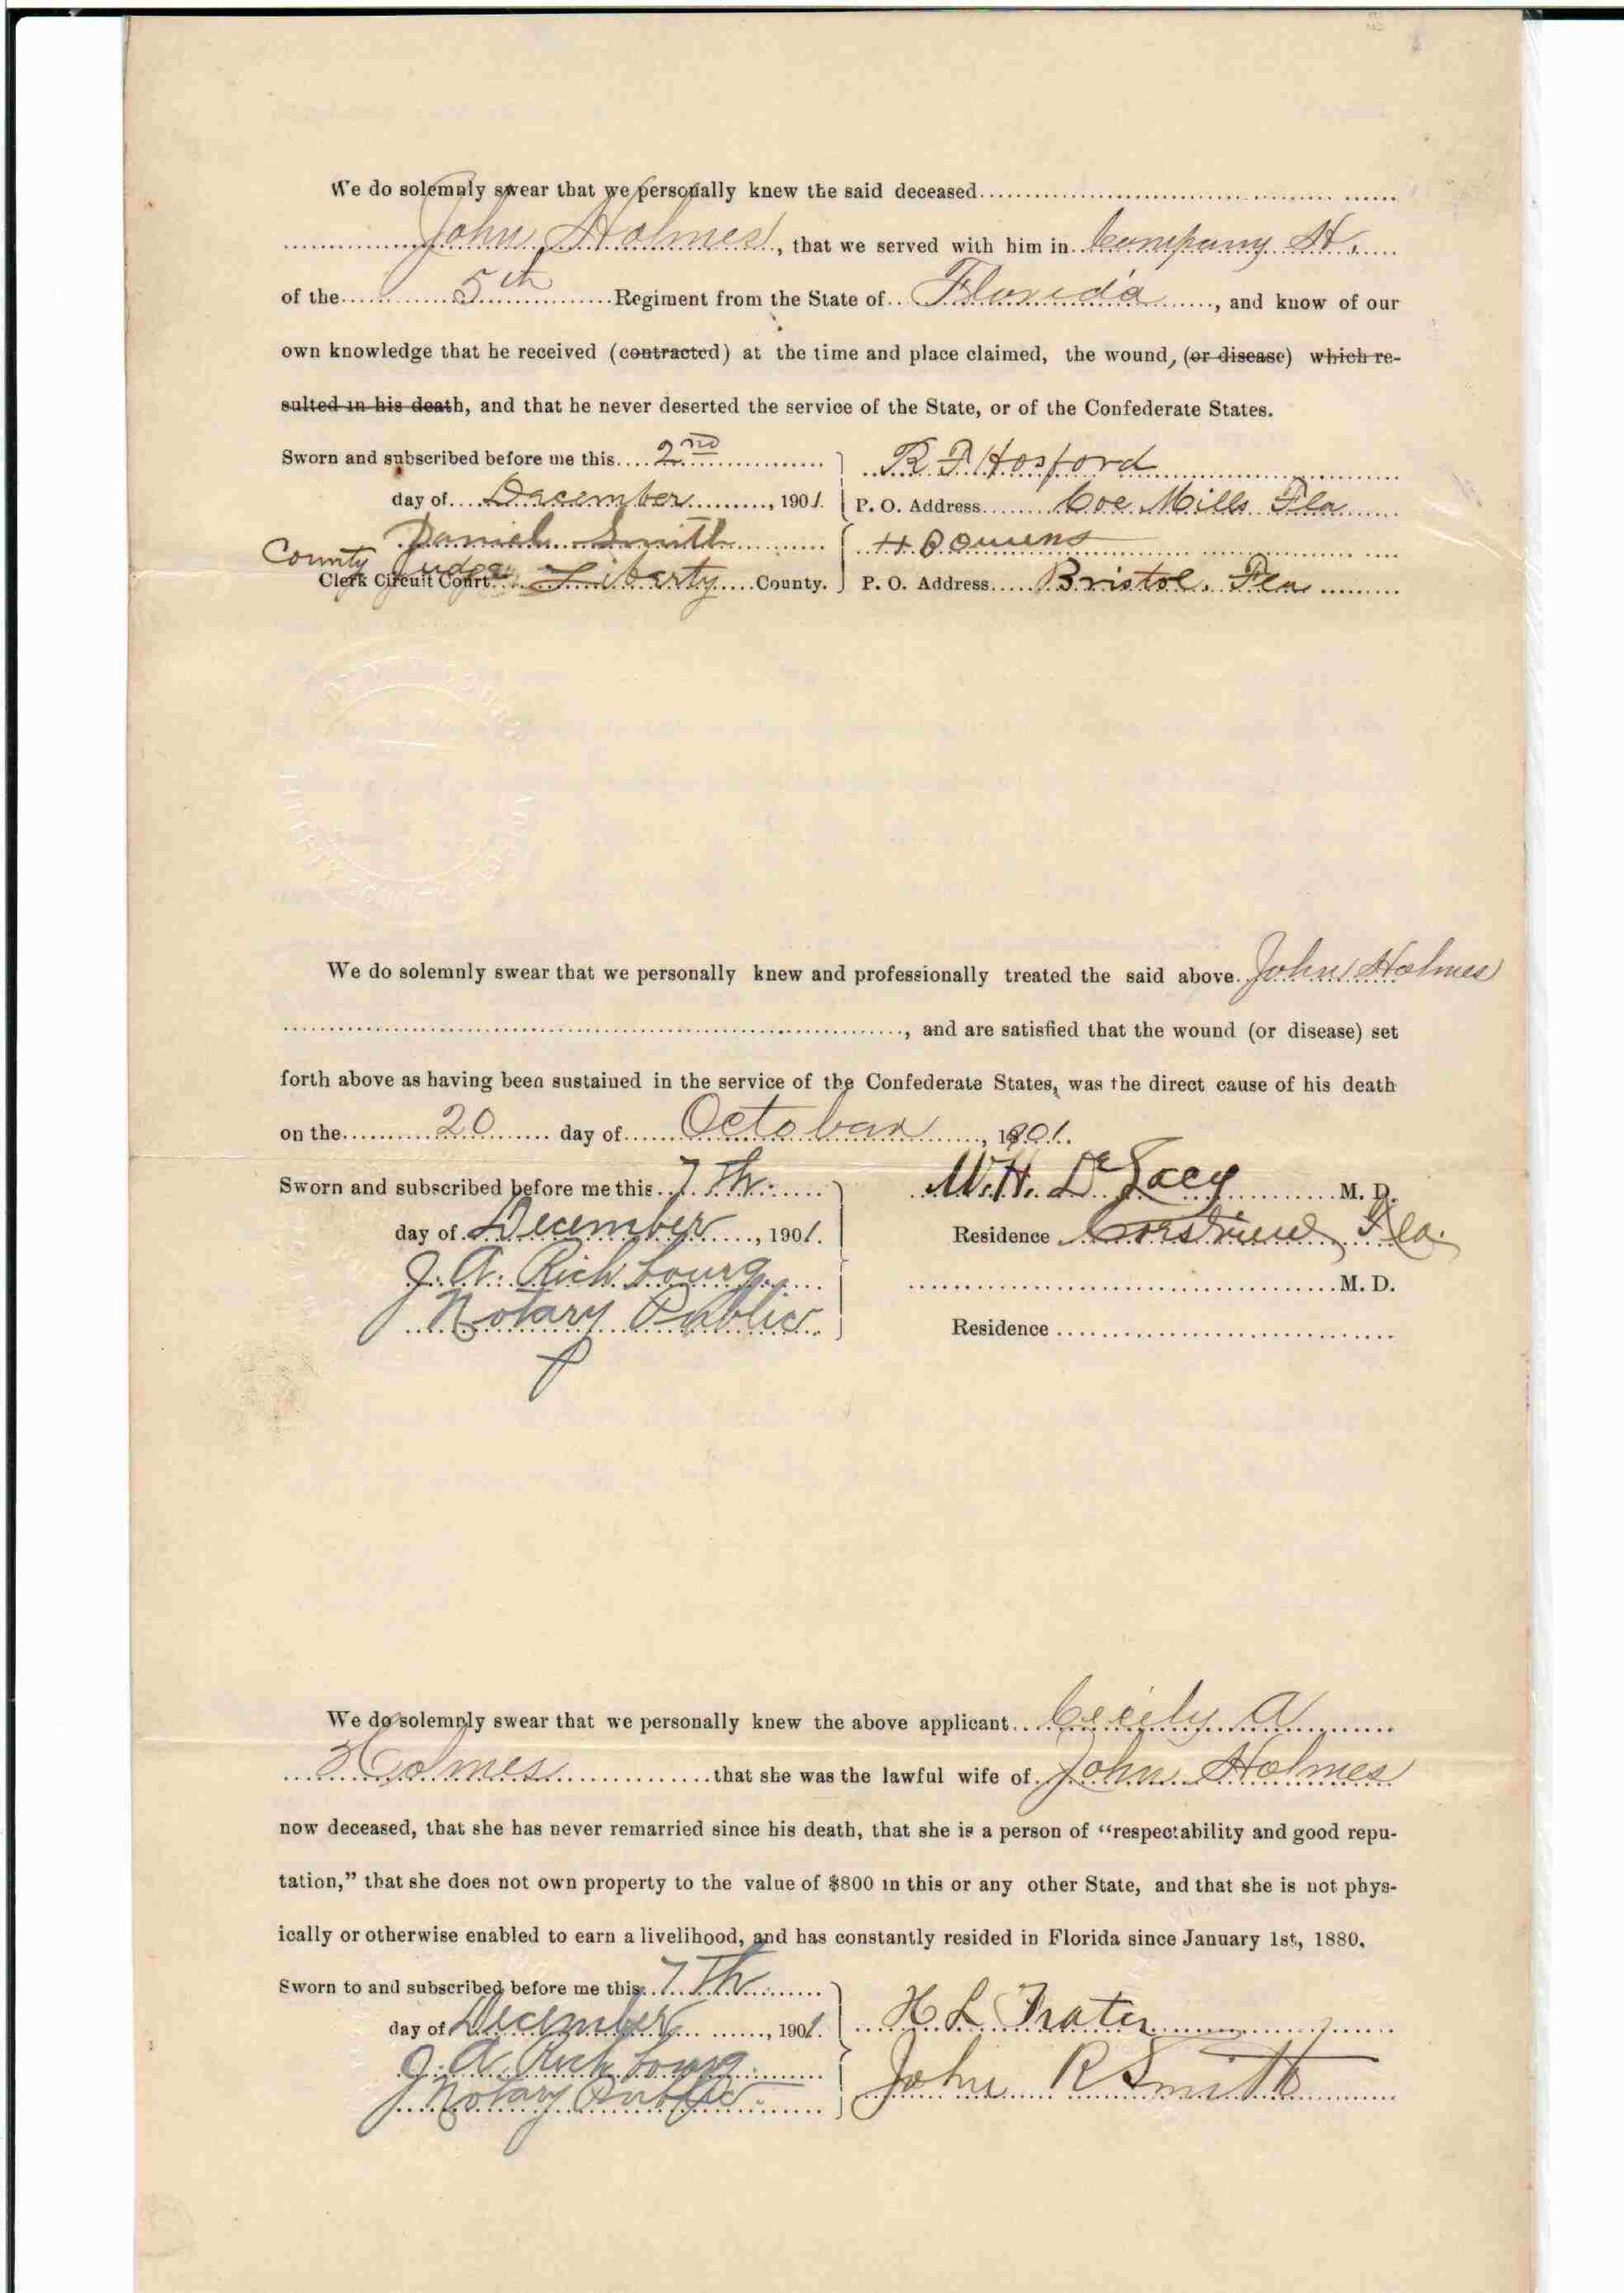 We do solemnly swear that we personally knew the said deceased
John Holmes, that we served with him in Company H.
of the 5th Regiment from the State of Florida, and know of our
own knowledge that he received (contracted) at the time and place claimed, the wound, (or disease) which re-
sulted in his death, and that he never deserted the service of the State, or of the Confederate States.
Sworn and subscribed before me this 2nd
R F Hosford
day of December, 1901.
P. O. Address Coe Mills Fla
Daniel Smith
H B Owens
County Judge
Clerk Circuit Court Liberty County.
P. O. Address Bristol, Fla
We do solemnly swear that we personally knew and professionally treated the said above John Holmes
, and are satisfied that the wound (or disease) set
forth above as having been sustained in the service of the Confederate States, was the direct cause of his death
on the 20 day of October, 1901.
Sworn and subscribed before me this 7th
W. H. De Lacy M. D.
day of December, 1901.
Residence Fla.
J. A. Richbourg
M. D.
Notary Public
Residence
We do solemnly swear that we personally knew the above applicant Cecily A
Holmes that she was the lawful wife of John Holmes
now deceased, that she has never remarried since his death, that she is a person of "respectability and good repu-
tation," that she does not own property to the value of $800 in this or any other State, and that she is not phys-
ically or otherwise enabled to earn a livelihood, and has constantly resided in Florida since January 1st, 1880.
Sworn to and subscribed before me this 7th
H L Frater
day of December, 1901.
J. A. Richbourg
John R Smith
Notary Public